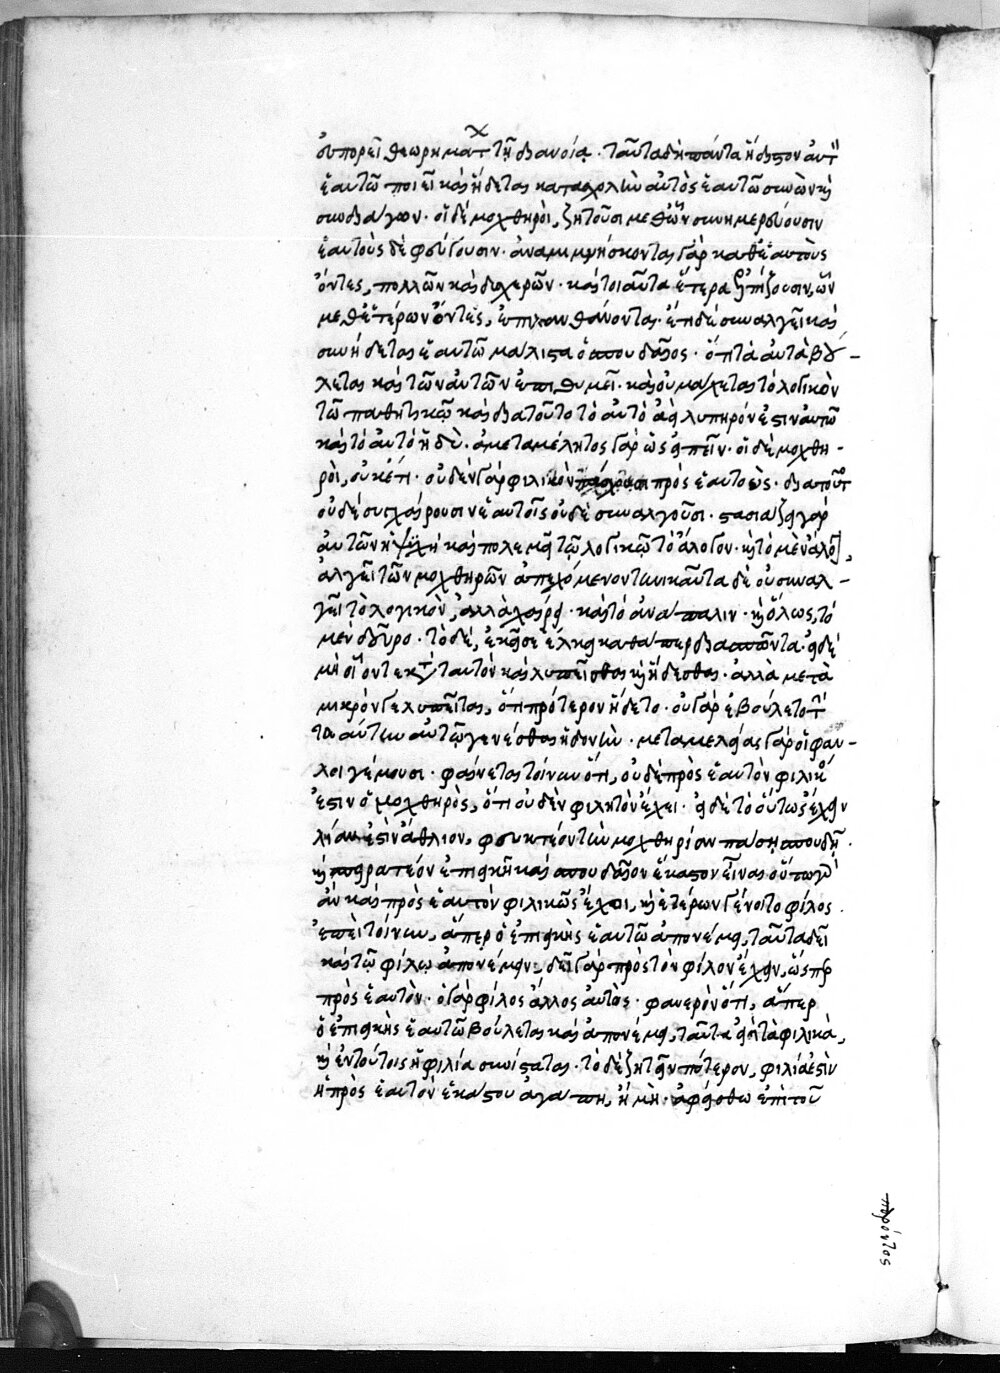 εὐπορεῖ θεωρημάτων τῇ διανοίᾳ· ταῦτα δὴ πάντα ἥδιστον αὐτῷ
ἑαυτῷ ποιεῖ καὶ ἥδεται κατασχολὴν αὐτὸς ἑαυτῷ συνὼν καὶ
συνδιάγων· οἱ δὲ μοχθηροὶ, ζητοῦσι μεθ' ὧν συνημερεύουσιν
ἑαυτοὺς δὲ φεύγουσιν· ἀναμιμνήσκονται γὰρ καθ' ἑαυτοὺς
ὄντες, πολλῶν καὶ δυσχερῶν· καὶ τοιαῦτα ἕτερα ἐλπίζουσιν, ὧν
μεθ' ἑτέρων ὄντες, ἐπιλανθάνονται· ἔτι δὲ συναλγεῖ καὶ
συνήδεται ἑαυτῷ μάλιστα ὁ σπουδαῖος· ὅτι τὰ αὐτὰ βού-
λεται καὶ τῶν αὐτῶν ἐπιθυμεῖ· καὶ οὐ μάχεται τὸ λογικὸν
τῷ παθητικῷ καὶ διατοῦτο τὸ αὐτὸ ἀεὶ λυπηρόν ἐστιν αὐτῷ
καὶ τὸ αὐτὸ ἡδὺ· ἀμεταμέλητος γὰρ ὡς εἰπεῖν· οἱ δὲ μοχθη-
ροὶ, οὐκέτι· οὐδὲν γὰρ φιλικὸν πάσχουσι πρὸς ἑαυτοὺς· διατοῦτο
οὐδὲ συγχαίρουσιν ἑαυτοῖς οὐδὲ συναλγοῦσι· στασιάζει γὰρ
αὐτῶν ἡ ψυχὴ καὶ πολεμεῖ τῷ λογικῷ τὸ ἄλογον· καὶ τὸ μὲν ἄλογον,
ἀλγεῖ τῶν μοχθηρῶν ἀπεχόμενον τηνικαῦτα δὲ οὐ συναλ-
γεῖ τὸ λογικὸν, ἀλλὰ χαίρει· καὶ τὸ ἀνάπαλιν· καὶ ὅλως, τὸ
μὲν δεῦρο· τὸ δὲ, ἐκεῖσε ἕλκει καθάπερ διασπῶντα· εἰ δὲ
μὴ οἷόν τε κατὰ ταυτὸν καὶ λυπεῖσθαι καὶ ἥδεσθαι· ἀλλὰ μετὰ
μικρὸν γε λυπεῖται, ὅτι πρότερον ἥδετο· οὐ γὰρ ἐβούλετο
ταύτην αὐτῷ γενέσθαι ἡδονὴν· μεταμελείας γὰρ οἱ φαυ-
λοι γέμουσι· φαίνεται τοίνυν ὅτι, οὐδὲ πρὸς ἑαυτὸν φιλικός
ἐστιν ὁ μοχθηρὸς, ὅτι οὐδὲν φιλητὸν ἔχει· εἰ δὲ τὸ οὕτως ἔχειν
λίαν ἐστὶν ἄθλιον, φευκτέον τὴν μοχθηρίαν πάσῃ σπουδῇ·
καὶ πειρατέον ἐπιεικῆ καὶ σπουδαῖον ἕκαστον εἶναι οὕτω γὰρ
ἂν καὶ πρὸς ἑαυτὸν φιλικῶς ἔχοι, καὶ ἑτέρων γένοιτο φίλος.
ἐπεὶ τοίνυν, ἅπερ ὁ ἐπιεικὴς ἑαυτῷ ἀπονέμει, ταῦτα δεῖ
καὶ τῷ φίλῳ ἀπονέμειν· δεῖ γὰρ πρὸς τὸν φίλον ἔχειν, ὥσπερ
πρὸς ἑαυτὸν· ὁ γὰρ φίλος ἄλλος αὐτὸς· φανερὸν ὅτι, ἅπερ
ὁ ἐπιεικὴς ἑαυτῷ βούλεται καὶ ἀπονέμει, ταῦτα εἰσὶ τὰ φιλικὰ,
καὶ ἐν τούτοις ἡ φιλία συνίσταται· τὸ δὲ ζητεῖν πότερον, φιλία ἐστὶν
ἡ πρὸς ἑαυτὸν ἑκάστου ἀγάπη, ἢ μὴ· ἀφείσθω ἐπὶ τοῦ
παρόντος